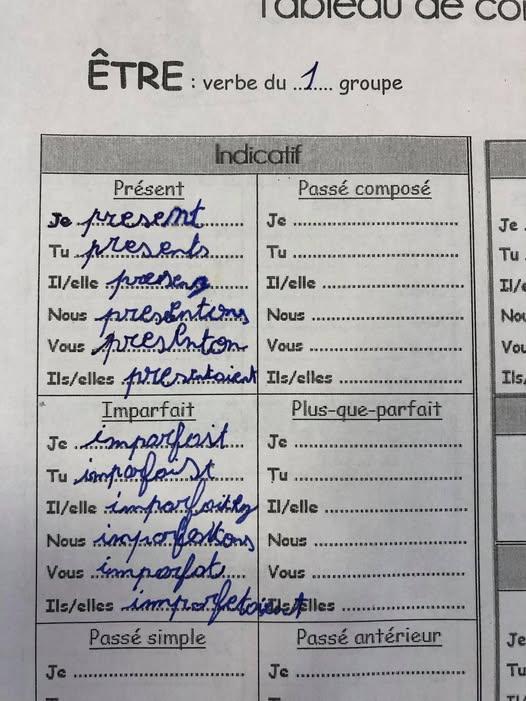 Tableau de co
ÊTRE : verbe du ..1.... groupe
Indicatif
Présent
Je present
Tu presents
Il/elle
Nous presentions
Vous presenton
Ils/elles presentaient
Passé composé
Je
Tu
Il/elle
Nous
Vous
Ils/elles
Imparfait
Je imparfait
Tu imparfaist
Il/elle
Nous
Vous imparfat
Ils/elles imparfetaient
Plus-que-parfait
Je
Tu
Il/elle
Nous
Vous
Ils/elles
Passé simple
Je
Passé antérieur
Je
Je
Tu
Il/e
Nou
Vou
Ils/
Je
Tu